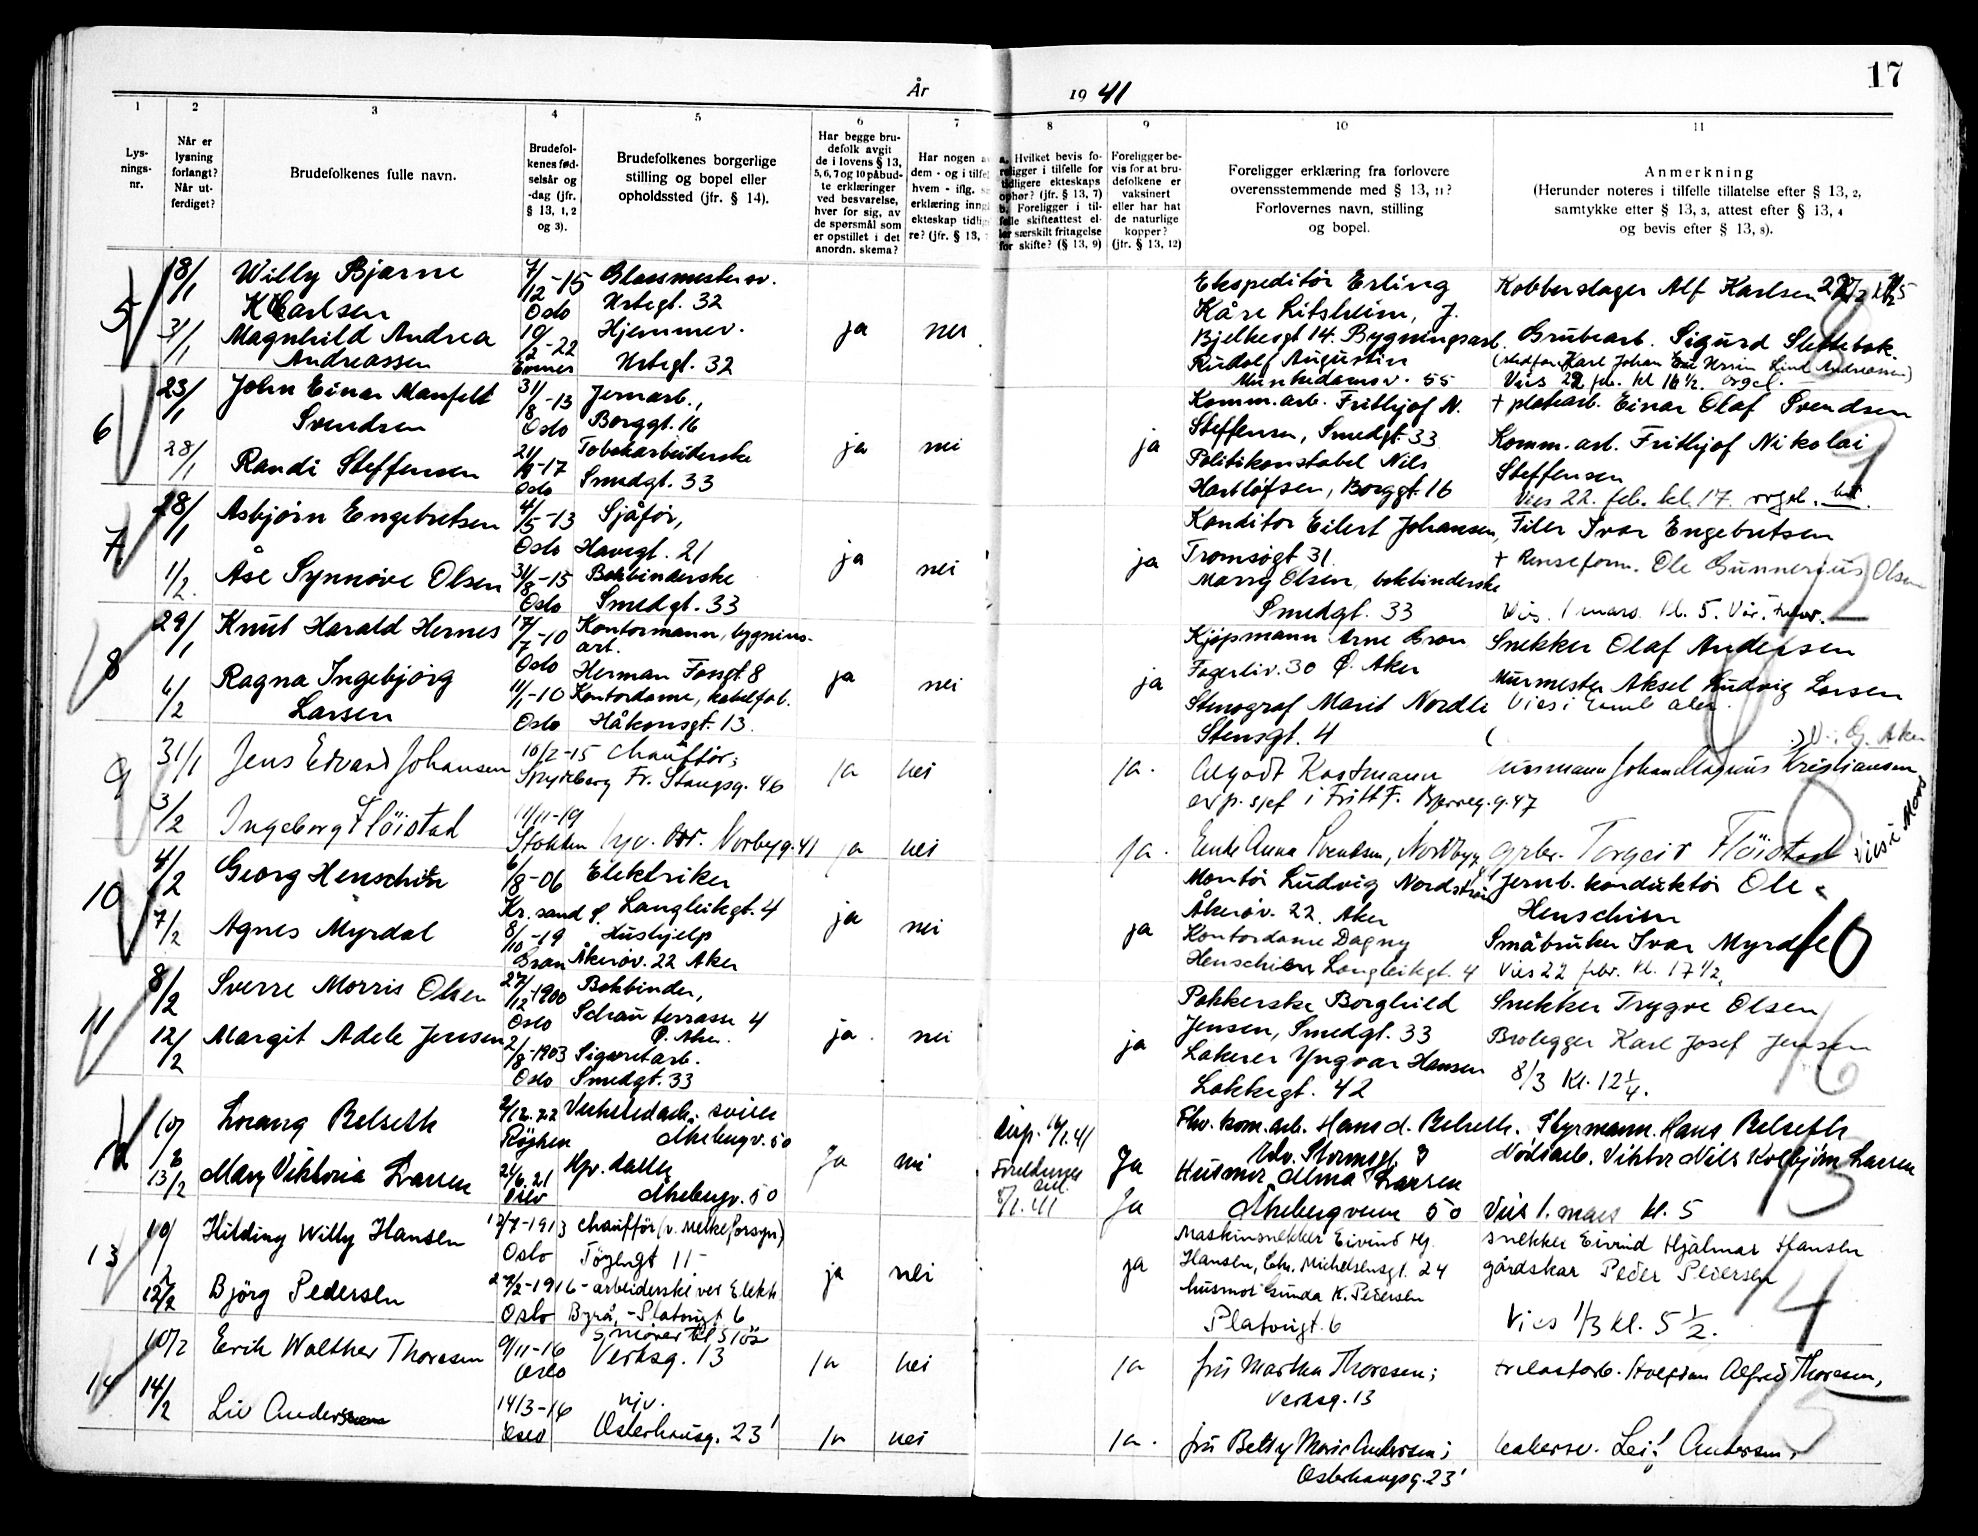 17
År
1941
1
2
3
4
5
6
7
8
9
10
11
Lys-
nings-
nr.
Når er
lysning
forlangt?
Når ut-
ferdiget?
Brudefolkenes fulle navn.
Brudefol-
kenes fød-
selsår og
-dag (jfr.
§ 13, 1, 2
og 3).
Brudefolkenes borgerlige
stilling og bopel eller
opholdssted (jfr. § 14).
Har begge bru-
defolk avgit
de i lovens § 13,
5, 6, 7 og 10 påbud-
te erklæringer
ved besvarelse,
hver for sig, av
de spørsmål som
er opstillet i det
anordn. skema?
Har nogen a
dem - og i tilfel
hvem - iflg.
erklæring inng
ekteskap tidlig
re? (jfr. § 13,
a. Hvilket bevis fo-
religger i tilfelle for
tidligere ekteskaps
ophør? (jfr. § 13, 7)
b. Foreligger i til-
felle skifteattest el-
ler særskilt fritagelse
for skifte? (§ 13, 9)
Foreligger be-
vis for at bru-
defolkene er
vaksinert
eller har hat
de naturlige
kopper?
(jfr. § 13, 12)
Foreligger erklæring fra forlovere
overensstemmende med § 13, 11?
Forlovernes navn, stilling
og bopel.
Anmerkning
(Herunder noteres i tilfelle tillatelse efter § 13, 2,
samtykke efter § 13, 3, attest efter § 13, 4
og bevis efter § 13, 8).
5
18/1 Willy Bjarne 7/12-15 Glassmester
Karlsen Oslo Urtegt. 32
31/1 Magnhild Andrea 19/2-22 Hjemmev. ja nei
Andreassen Evenes Urtegt. 32
Ekspeditør Erling Kobberslager Alf Karlsen
Kåre Litsheim, J.
Bjelkesgt 14. Bygningsarb. Grubearb. Sigurd
Rudolf Augustin
Munkedamsv. 55 Vies 22 feb. kl 16½. orgel.
6
23/1 John Einar Manfelt 31/8-13 Jernarb.,
Svendsen Oslo Borggt. 16
28/1 Randi Steffensen 21/9-17 Tobakarbeiderske ja nei ja
Oslo Smedgt. 33
Komm. arb. Frithjof N. + platearb. Einar Olaf Svendsen
Steffensen, Smedgt 33 Komm. arb. Frithjof Nikolai
Politikonstabel Nils Steffensen
Hartløfsen, Borggt. 16 Vies 22. feb. kl. 17. orgel.
7
28/1 Asbjørn Engebretsen 4/5-13 Sjåfør,
Oslo Havregt. 21
1/2. Åse Synnøve Olsen 31/8-15 Bokbinderske ja nei ja
Oslo Smedgt. 33
Konditor Eilert Johansen, Filer Ivar Engebretsen
Tromsøgt 31. + Ole Gunnerius Olsen
Marry Olsen, bokbinderske
Smedgt. 33 Vies. 1 mars. kl. 5.
8
29/1 Knut Harald Hernes 17/7-10 Kontormann, bygnins-
art.
Oslo Herman Fossgt. 8
6/2 Ragna Ingebjørg 11/1-10 Kontordame, kabelfab. ja nei ja
Larsen Oslo Håkonsgt. 13
Kjøpmann Arne Snekker Olaf Andersen
Fagerliv. 30 Ø. Aker Murmester Aksel Ludvig Larsen
Stenograf Marit Nordli Vies i
Stensgt. 4
9
31/1 Jens Edvard Johansen 10/2-15 chauffør;
Spydeberg Fr. Stangsg. 46 ja nei ja.
3/2 Ingeborg Flöistad 11/11-19
Stokken hjv. Norbyg. 41 ja nei ja.
Algodt Kastmann Johan Magnus Kristiansen
i Fritt F. Bjerreg. g. 47
Enke Anna Svendsen, Nordbyg grbr. Torgeir Flöistad
10
4/2 Georg Henschien 6/8-06 Elektriker
Kr.sand S. Langleikgt. 4
7/2 Agnes Myrdal 8/10-19 Hushjelp ja nei ja
Gran Åkerøv. 22 Aker
Montør Ludvig Nordstrøm Jernb. konduktør Ole
Åkerøv. 22. Aker Henschien
Kontordame Dagny Småbruker Ivar Myrdal
Henschien Langleikgt. 4 Vies 22 febr. kl. 17½.
11
8/2 Sverre Morris Olsen 27/12-1900 Bokbinder,
Oslo terrasse 4
Ø. Aker.
12/2 Margit Adele Jensen 2/8-1903 Sigaretarb. ja nei ja
Oslo Smedgt. 33
Pakkerske Borghild Snekker Trygve Olsen
Jensen, Smedgt. 33 Brolegger Karl Josef Jensen
Lakerer Yngvar Hansen 8/3 Kl. 12¼.
Lakkegt. 42
12
10/2 Lorang Belseth 2/12.22
Røyken Åkebergv. 50
13/2 Mary Viktoria Larsen 24/6.21 Hjv. datter Ja nei Ja
Oslo Åkebergv. 50
16/1.41
8/1.41 Ja
Hans d. Belseth. Styrmann. Hans Belseth
Edv. Stormsgt. 3 Viktor Nils Kolbjörn Larsen
Husmor Alma Larsen
Åkebergveien 50 Vies 1. mars kl. 5
13
10/2 Hilding Willy Hansen 12/7-1913 chauffør (v. Melkeforsyn)
Oslo Töyengt 11
12/2 Björg Pedersen 27/2-1916 - arbeiderske ved Elektr. ja nei ja
Oslo Byrå, - Platougt 6
Maskinsnekker Eivind Hj. snekker Eivind Hjalmar Hansen
Hansen, Chr. Michelsensgt. 24 gårdskar Peder Pedersen
husmor Gunda K. Pedersen
Platougt. 6 Vies 1/3 kl. 5½.
14
10/2 Erik Walther Thoresen 9/11-16 smører til sjös
Oslo Verksg. 13 ja nei ja
14/2 Liv Andersen 14/3-16 hjv.
Oslo Osterhausg. 23' ja nei ja.
fru Martha Thoresen; trelastarb. Alfred Thoresen,
Verksg. 13
fru Betsy Marie Andersen; Leif Andersen,
Osterhausg. 23'
8
9
12
10
16
13
14
15
Vies i Moss